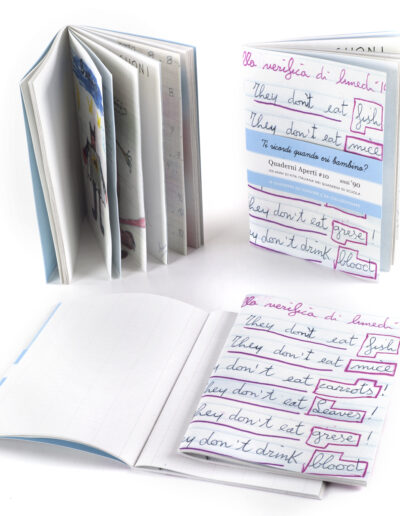 lla verifica di lunedì
They don't eat fish
They don't eat mice
Ti ricordi quando eri bambino?
Quaderni Aperti #10 anni '90
hey don't eat grese!
hey don't drink blood
lla verifica di lunedì
They don't eat fish
They don't eat mice
hey don't eat carrots!
hey don't eat leaves!
hey don't eat grese!
hey don't drink blood